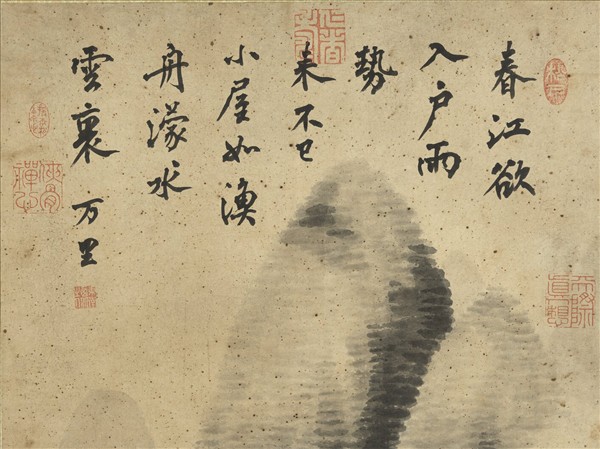 春江欲
入户雨
勢
来不已
小屋如漁
舟濛水
雲裏 万里